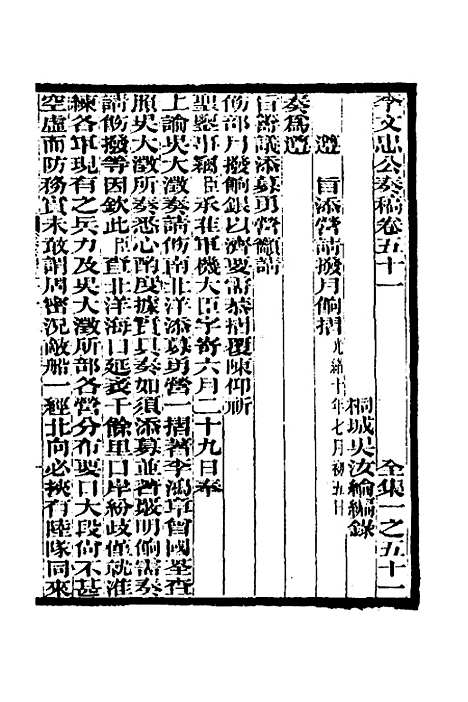 李文忠公奏稿卷五十一　全集一之五十一
桐城吳汝綸編錄
遵　旨添營請撥月餉摺光緒十年七月初五日
奏爲遵
旨籌議添募勇營籲請
飭部月撥餉銀以濟要需恭摺覆陳仰祈
聖鑒事竊臣承准軍機大臣字寄六月二十九日奉
上諭吳大澂奏請飭南北洋添募勇營一摺著李鴻章曾國荃查
照吳大澂所奏悉心酌度據實具奏如須添募並著聲明餉需奏
請飭撥等因欽此臣查北洋海口延袤千餘里口岸紛歧僅就淮
練各軍現有之兵力及吳大澂所部各營分布要口大段尚不甚
空虛而防務實未敢謂周密況敵船一經北向必挾有陸隊同來